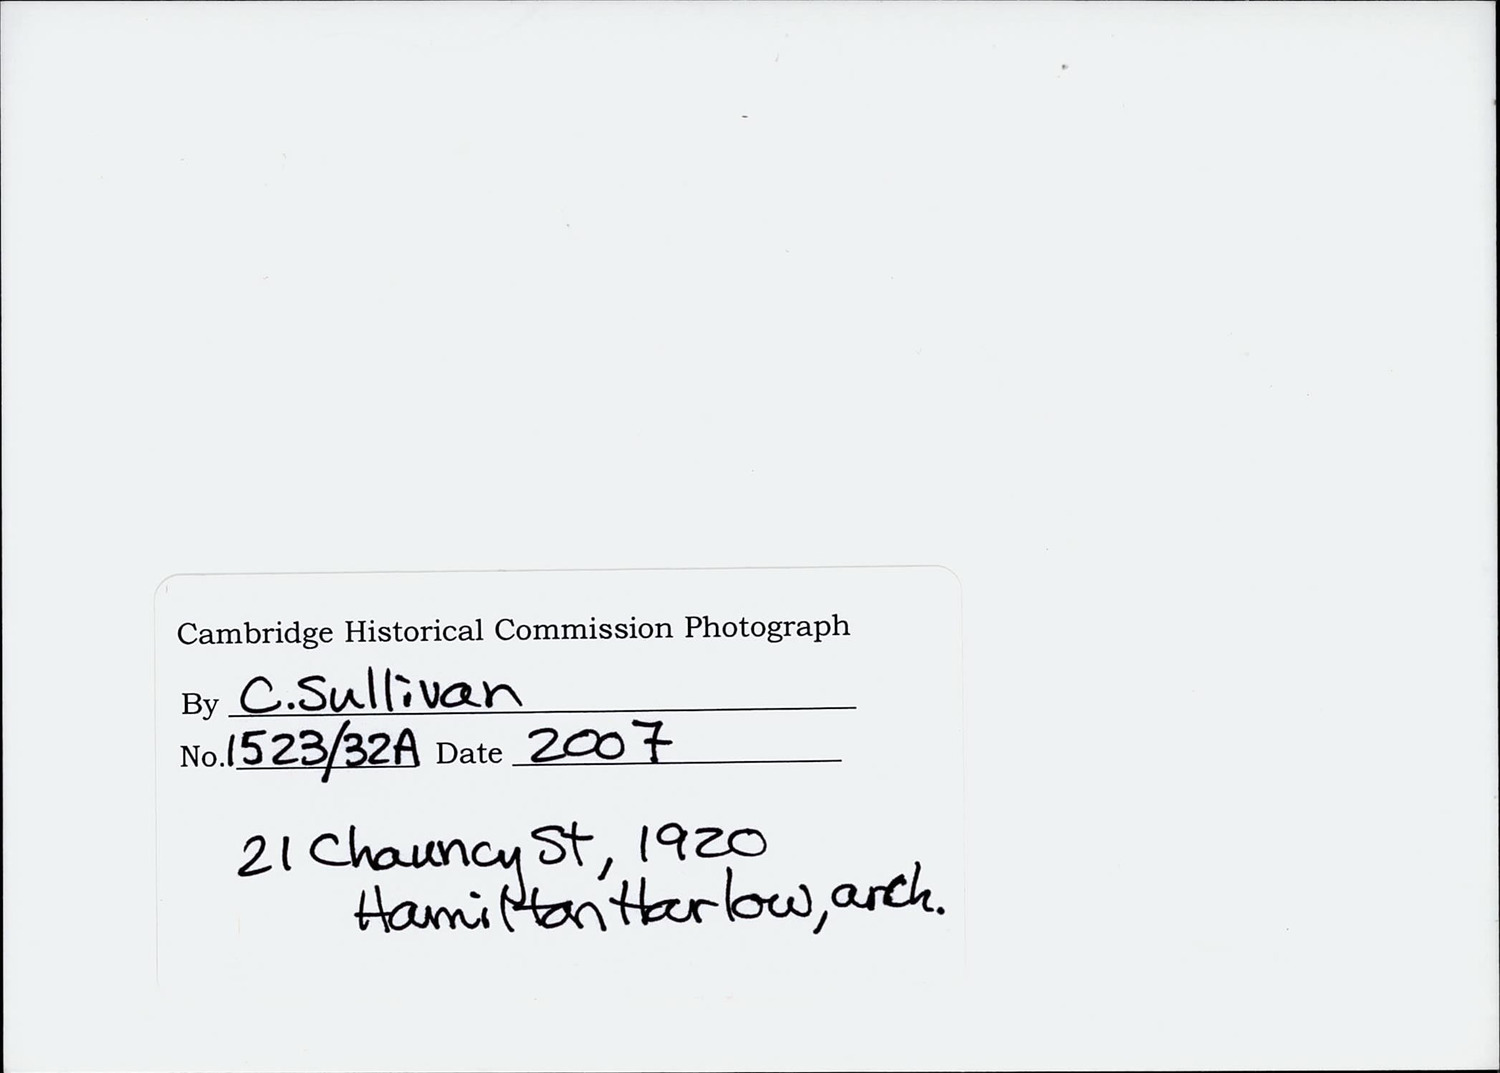 Cambridge Historical Commission Photograph
By C. Sullivan
No. 1523/32A Date 2007
21 Chauncy St, 1920
Hamilton Harlow, arch.